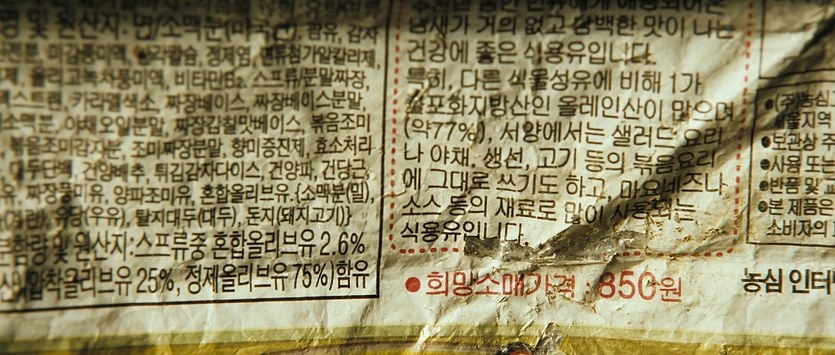 명 및 원산지: 면/소맥분(미국산), 팜유, 감자
전분, 미감풍미액, 난각칼슘, 정제염, 면류첨가알칼리제,
제, 올리고녹차풍미액, 비타민B₂, 스프류/분말짜장,
덱스트린, 카라멜색소, 짜장베이스, 짜장베이스분말,
소맥분, 야채오일분말, 짜장감칠맛베이스, 볶음조미
볶음조미감자분, 조미짜장분말, 향미증진제, 효소처리
대두단백, 건양배추, 튀김감자다이스, 건양파, 건당근,
유, 짜장풍미유, 양파조미유, 혼합올리브유.{소맥분(밀),
유당(우유), 탈지대두(대두), 돈지(돼지고기)}
함량 및 원산지:스프류중 혼합올리브유 2.6%
압착올리브유 25%, 정제올리브유 75%)함유
냄새가 거의 없고 담백한 맛이 나는
건강에 좋은 식용유입니다.
특히, 다른 식물성유에 비해 1가
불포화지방산인 올레인산이 많으며
(약77%), 서양에서는 샐러드 요리
나 야채, 생선, 고기 등의 볶음요리
에 그대로 쓰기도 하고, 마요네즈나
소스 등의 재료로 많이 사용되는
식용유입니다.
●희망소매가격 : 850원
●(주)농심
●보관상 주
●사용 또는
●반품 및
●본 제품은
소비자의
농심 인터